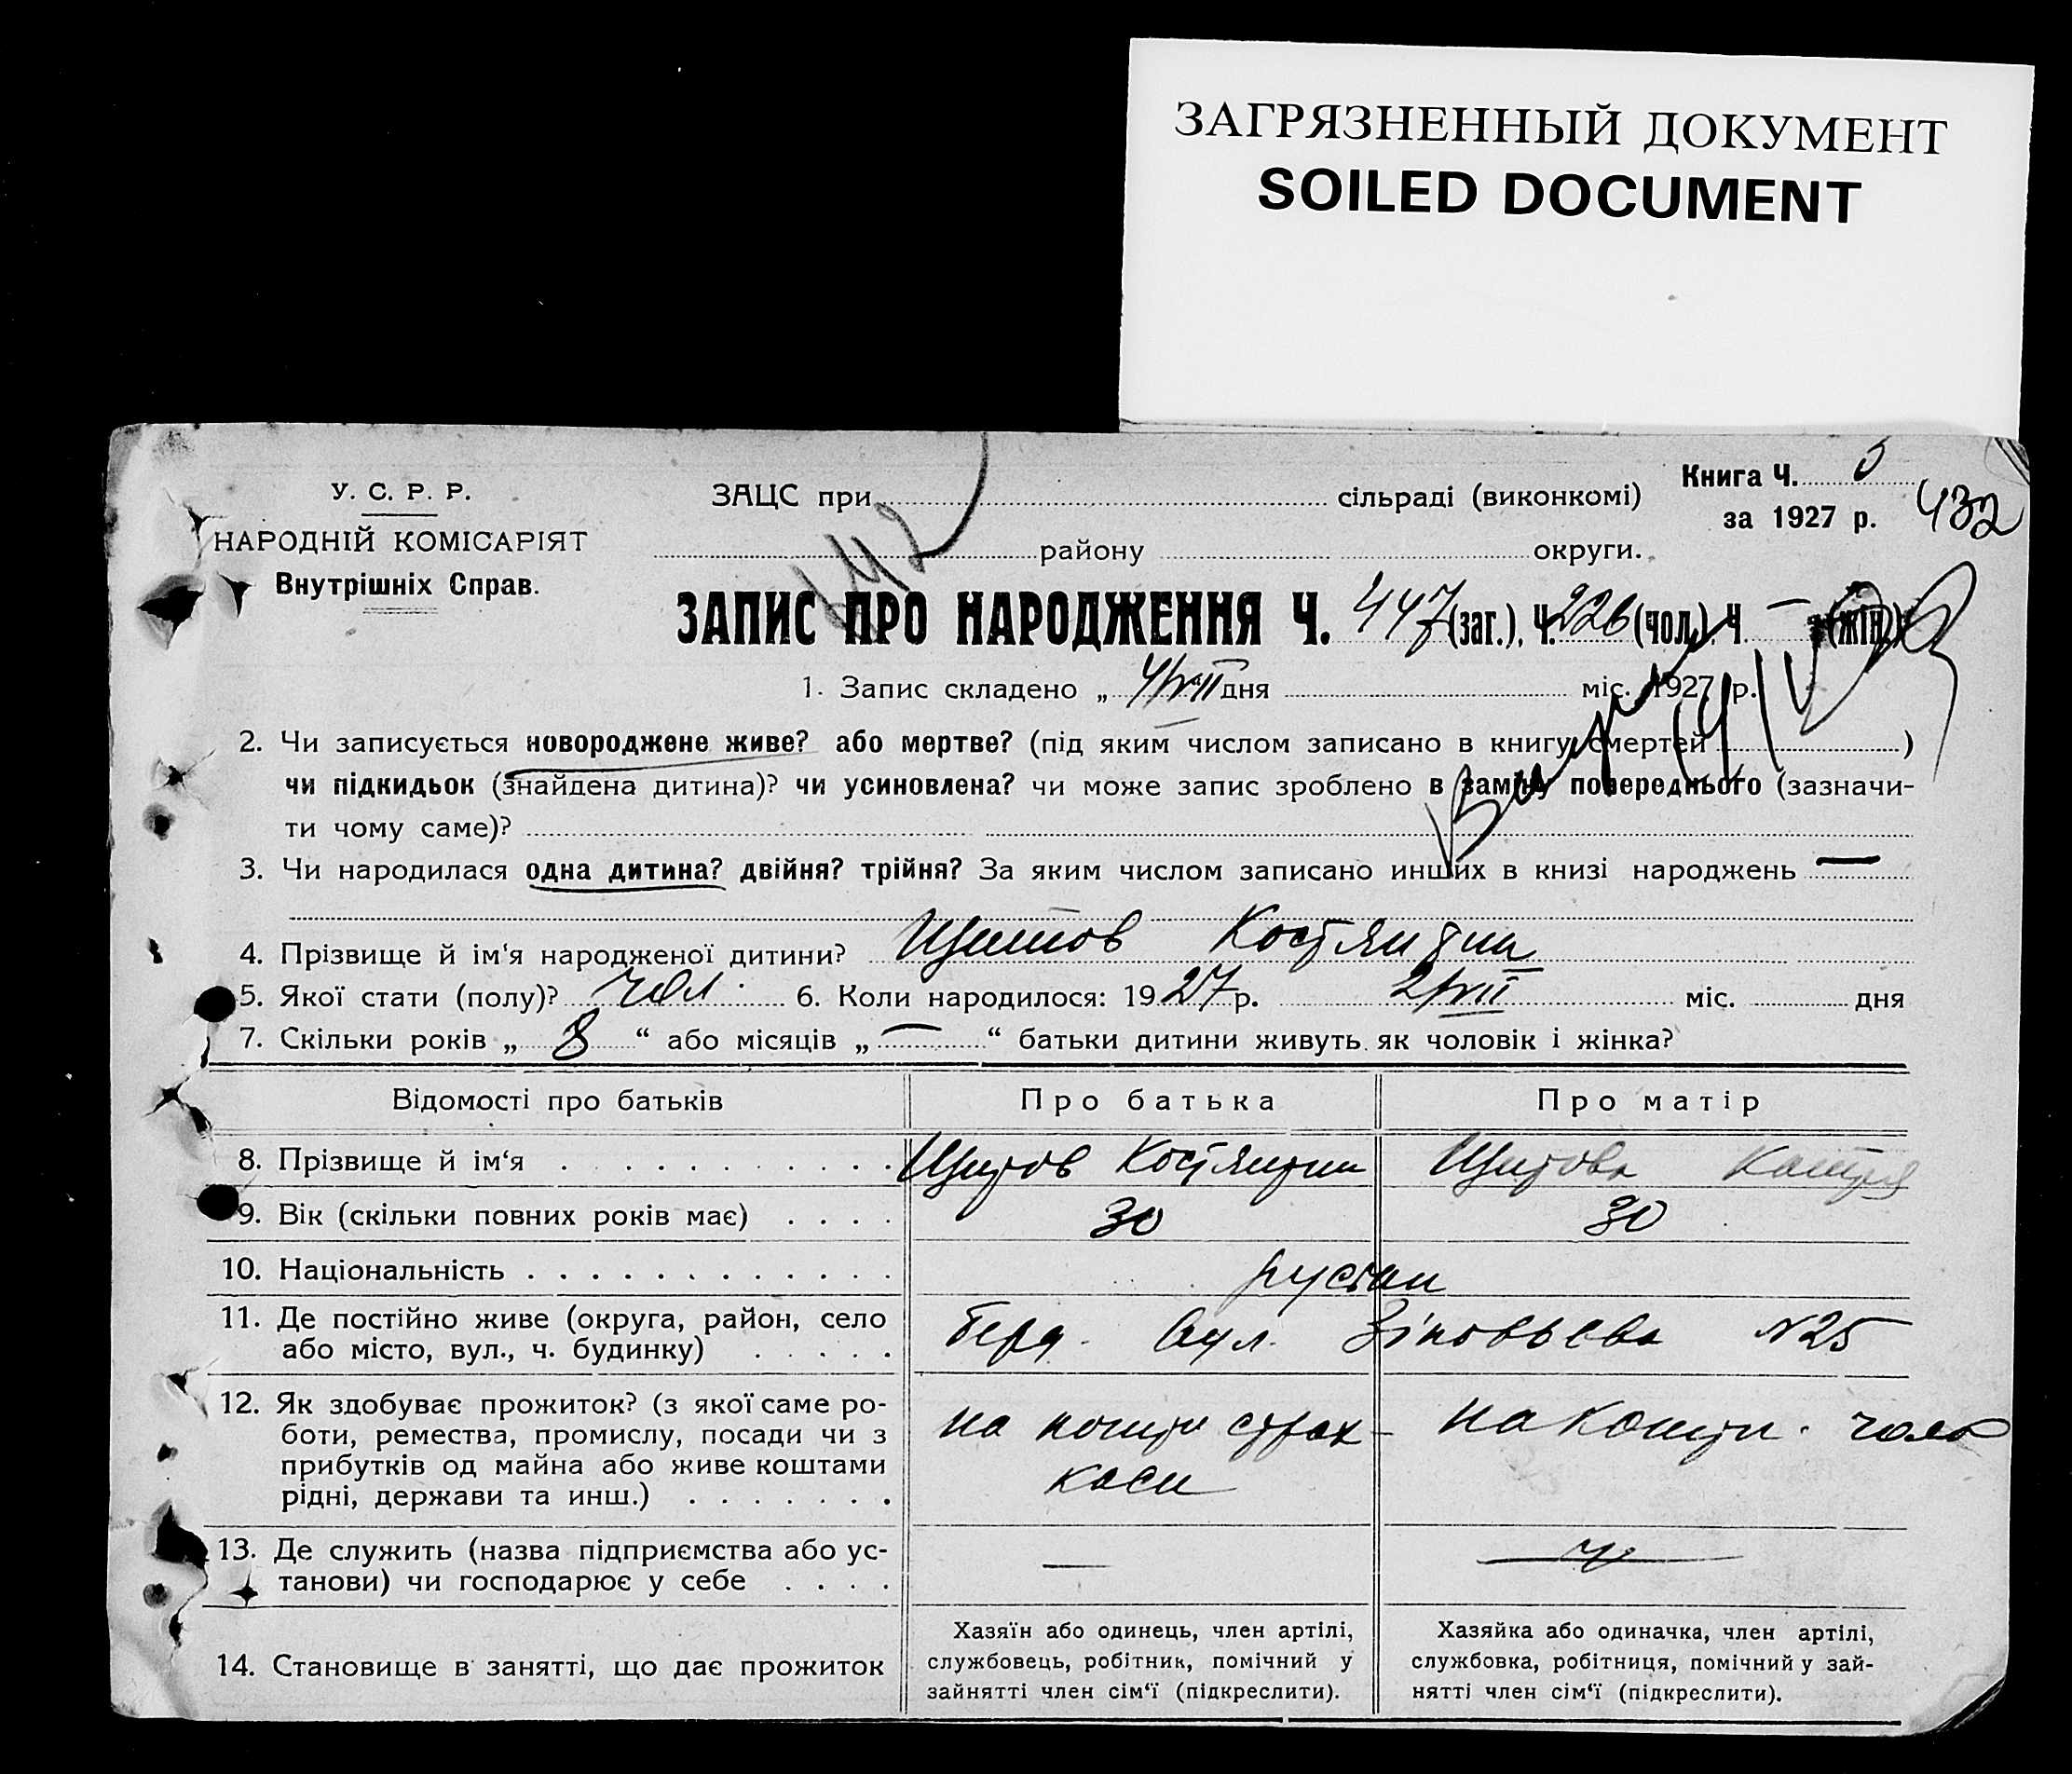 ЗАГРЯЗНЕННЫЙ ДОКУМЕНТ
SOILED DOCUMENT
У. С. Р. Р.
НАРОДНІЙ КОМІСАРІЯТ
Внутрішніх Справ.
ЗАЦС при сільраді (виконкомі)
району округи.
Книга Ч. 5
за 1927 р.
432
142
ЗАПИС ПРО НАРОДЖЕННЯ Ч. 447 (заг.), Ч. 226 (чол.), Ч. — (жін.)
1. Запис складено „ 4/VII дня міс. 1927 р.
2. Чи записується новороджене живе? або мертве? (під яким числом записано в книгу смертей )
чи підкидьок (знайдена дитина)? чи усиновлена? чи може запис зроблено в заміну попереднього (зазначи-
ти чому саме)?
3. Чи народилася одна дитина? двійня? трійня? За яким числом записано инших в книзі народжень —
4. Прізвище й ім‘я народженої дитини? Щитов Костянтин
5. Якої стати (полу)? чол. 6. Коли народилося: 1927 р. 2/VII міс. дня
7. Скільки років „ 8 “ або місяців „ — “ батьки дитини живуть як чоловік і жінка?
Відомості про батьків Про батька Про матір
8. Прізвище й ім‘я Щитов Костянтин Щитова Катря
9. Вік (скільки повних років має) 30 30
10. Національність руськи
11. Де постійно живе (округа, район, село
або місто, вул., ч. будинку)
Берд. вул. Зіновьєва №25
12. Як здобуває прожиток? (з якої саме ро-
боти, ремества, промислу, посади чи з
прибутків од майна або живе коштами
рідні, держави та инш.)
на кошти страх-
каси
на кошти чол.
13. Де служить (назва підприємства або ус-
танови) чи господарює у себе
—
14. Становище в занятті, що дає прожиток
Хазяїн або одинець, член артілі,
службовець, робітник, помічний у
зайнятті член сім‘ї (підкреслити).
Хазяйка або одиначка, член артілі,
службовка, робітниця, помічний у зай-
нятті член сім‘ї (підкреслити).